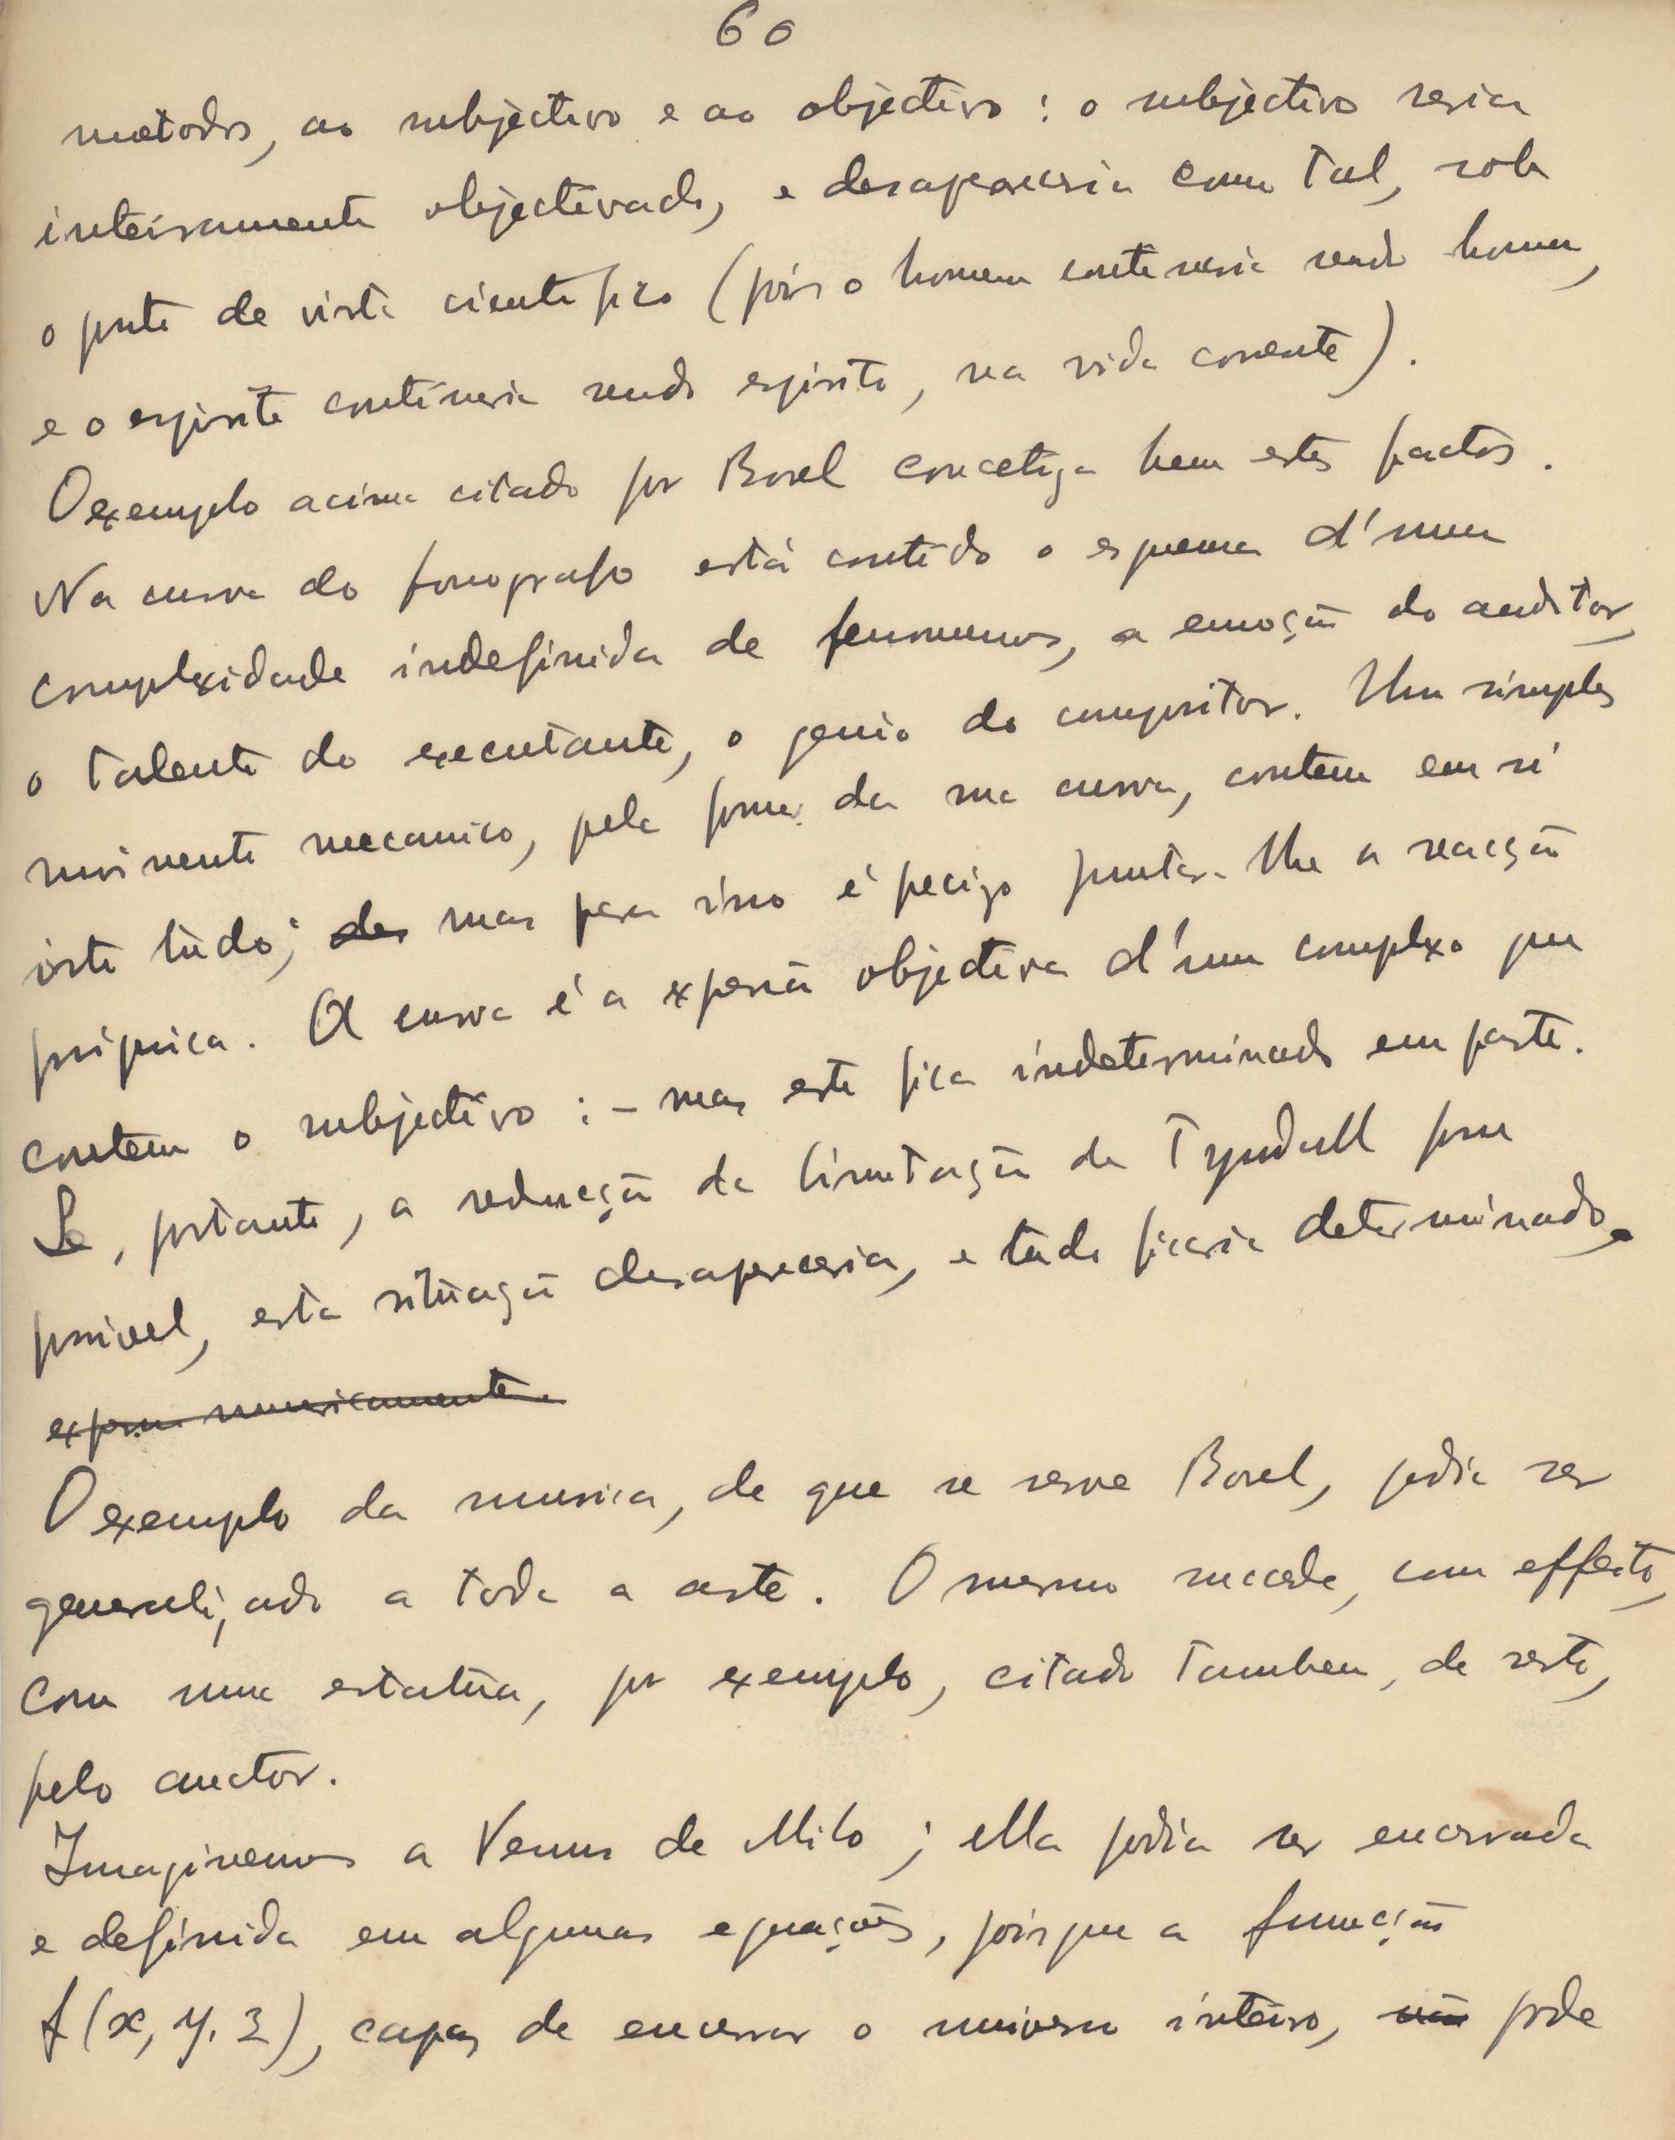 60
metodos, ao subjectivo e ao objectivo : o subjectivo seria
inteiramente objectivado, e desapareceria como tal, sob
o ponto de vista cientifico (pois o homem continuaria sendo homem,
e o espirito continuaria sendo espirito, na vida corrente).
O exemplo acima citado por Borel concretiza bem estes factos.
Na curva do fonografo está contido o esquema d'uma
complexidade indefinida de fenomenos, a emoção do auditor,
o talento do executante, o genio do compositor. Um simples
movimento mecanico, pela forma da sua curva, contem em si
isto tudo; des mas para isso é preciso juntar-lhe a reacção
psiquica. A curva é a expressão objectiva d'um complexo que
contem o subjectivo : – mas este fica indeterminado em parte.
Se, portanto, a reducção da limitação de Tyndall fosse
possivel, esta situação desapareceria, e tudo ficaria determinado.
numericamente.
O exemplo da musica, de que se serve Borel, podia ser
generalizado a toda a arte. O mesmo succede, com effeito,
com uma estatua, por exemplo, citado tambem, de resto,
pelo auctor.
Imaginemos a Venus de Milo ; ella podia ser encerrada
e definida em algumas equações, pois que a funcção
f(x, y, z), capaz de encerrar o universo inteiro, não pode